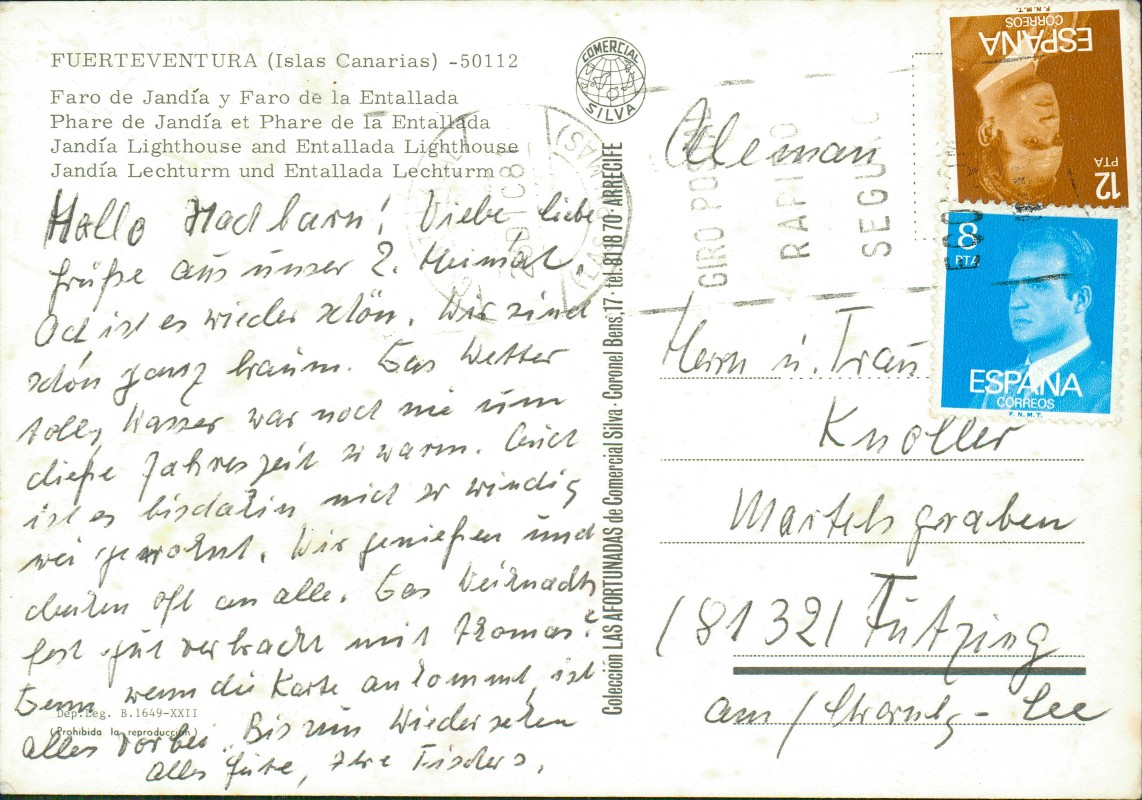 FUERTEVENTURA (Islas Canarias) -50112
Faro de Jandía y Faro de la Entallada
Phare de Jandía et Phare de la Entallada
Jandía Lighthouse and Entallada Lighthouse
Jandía Lechturm und Entallada Lechturm
Hallo Nachbarn! Viele liebe
Grüße aus unser 2. Heimat.
Ach ist es wieder schön. Wir sind
schön ganz braun. Das Wetter
toll, Wasser war noch nie um
diese Jahreszeit so warm. Auch
ist es bisdahin nicht so windig
wei gewohnt. Wir genießen und
denken oft an alle. Das Weihnachts
fest gut verbracht mit Thomas?
Denn wenn die Karte ankommt, ist
alles vorbei. Bis zum Wiedersehen
alles Gute, Ihre Fischers.
Dep. Leg. B.1649-XXII
(Prohibida la reproducción)
COMERCIAL
SILVA
Colección LAS AFORTUNADAS de Comercial Silva · Coronel Bens, 17 · tel. 811870 · ARRECIFE
GIRO POSTAL
RAPIDO
SEGURO
Aleman
ESPAÑA
CORREOS
F.N.M.T.
12
PTA
8
PTA
ESPAÑA
CORREOS
F.N.M.T.
Herrn u. Frau
Knoller
Martelsgraben
(8132) Tutzing
am / Starnbg - See